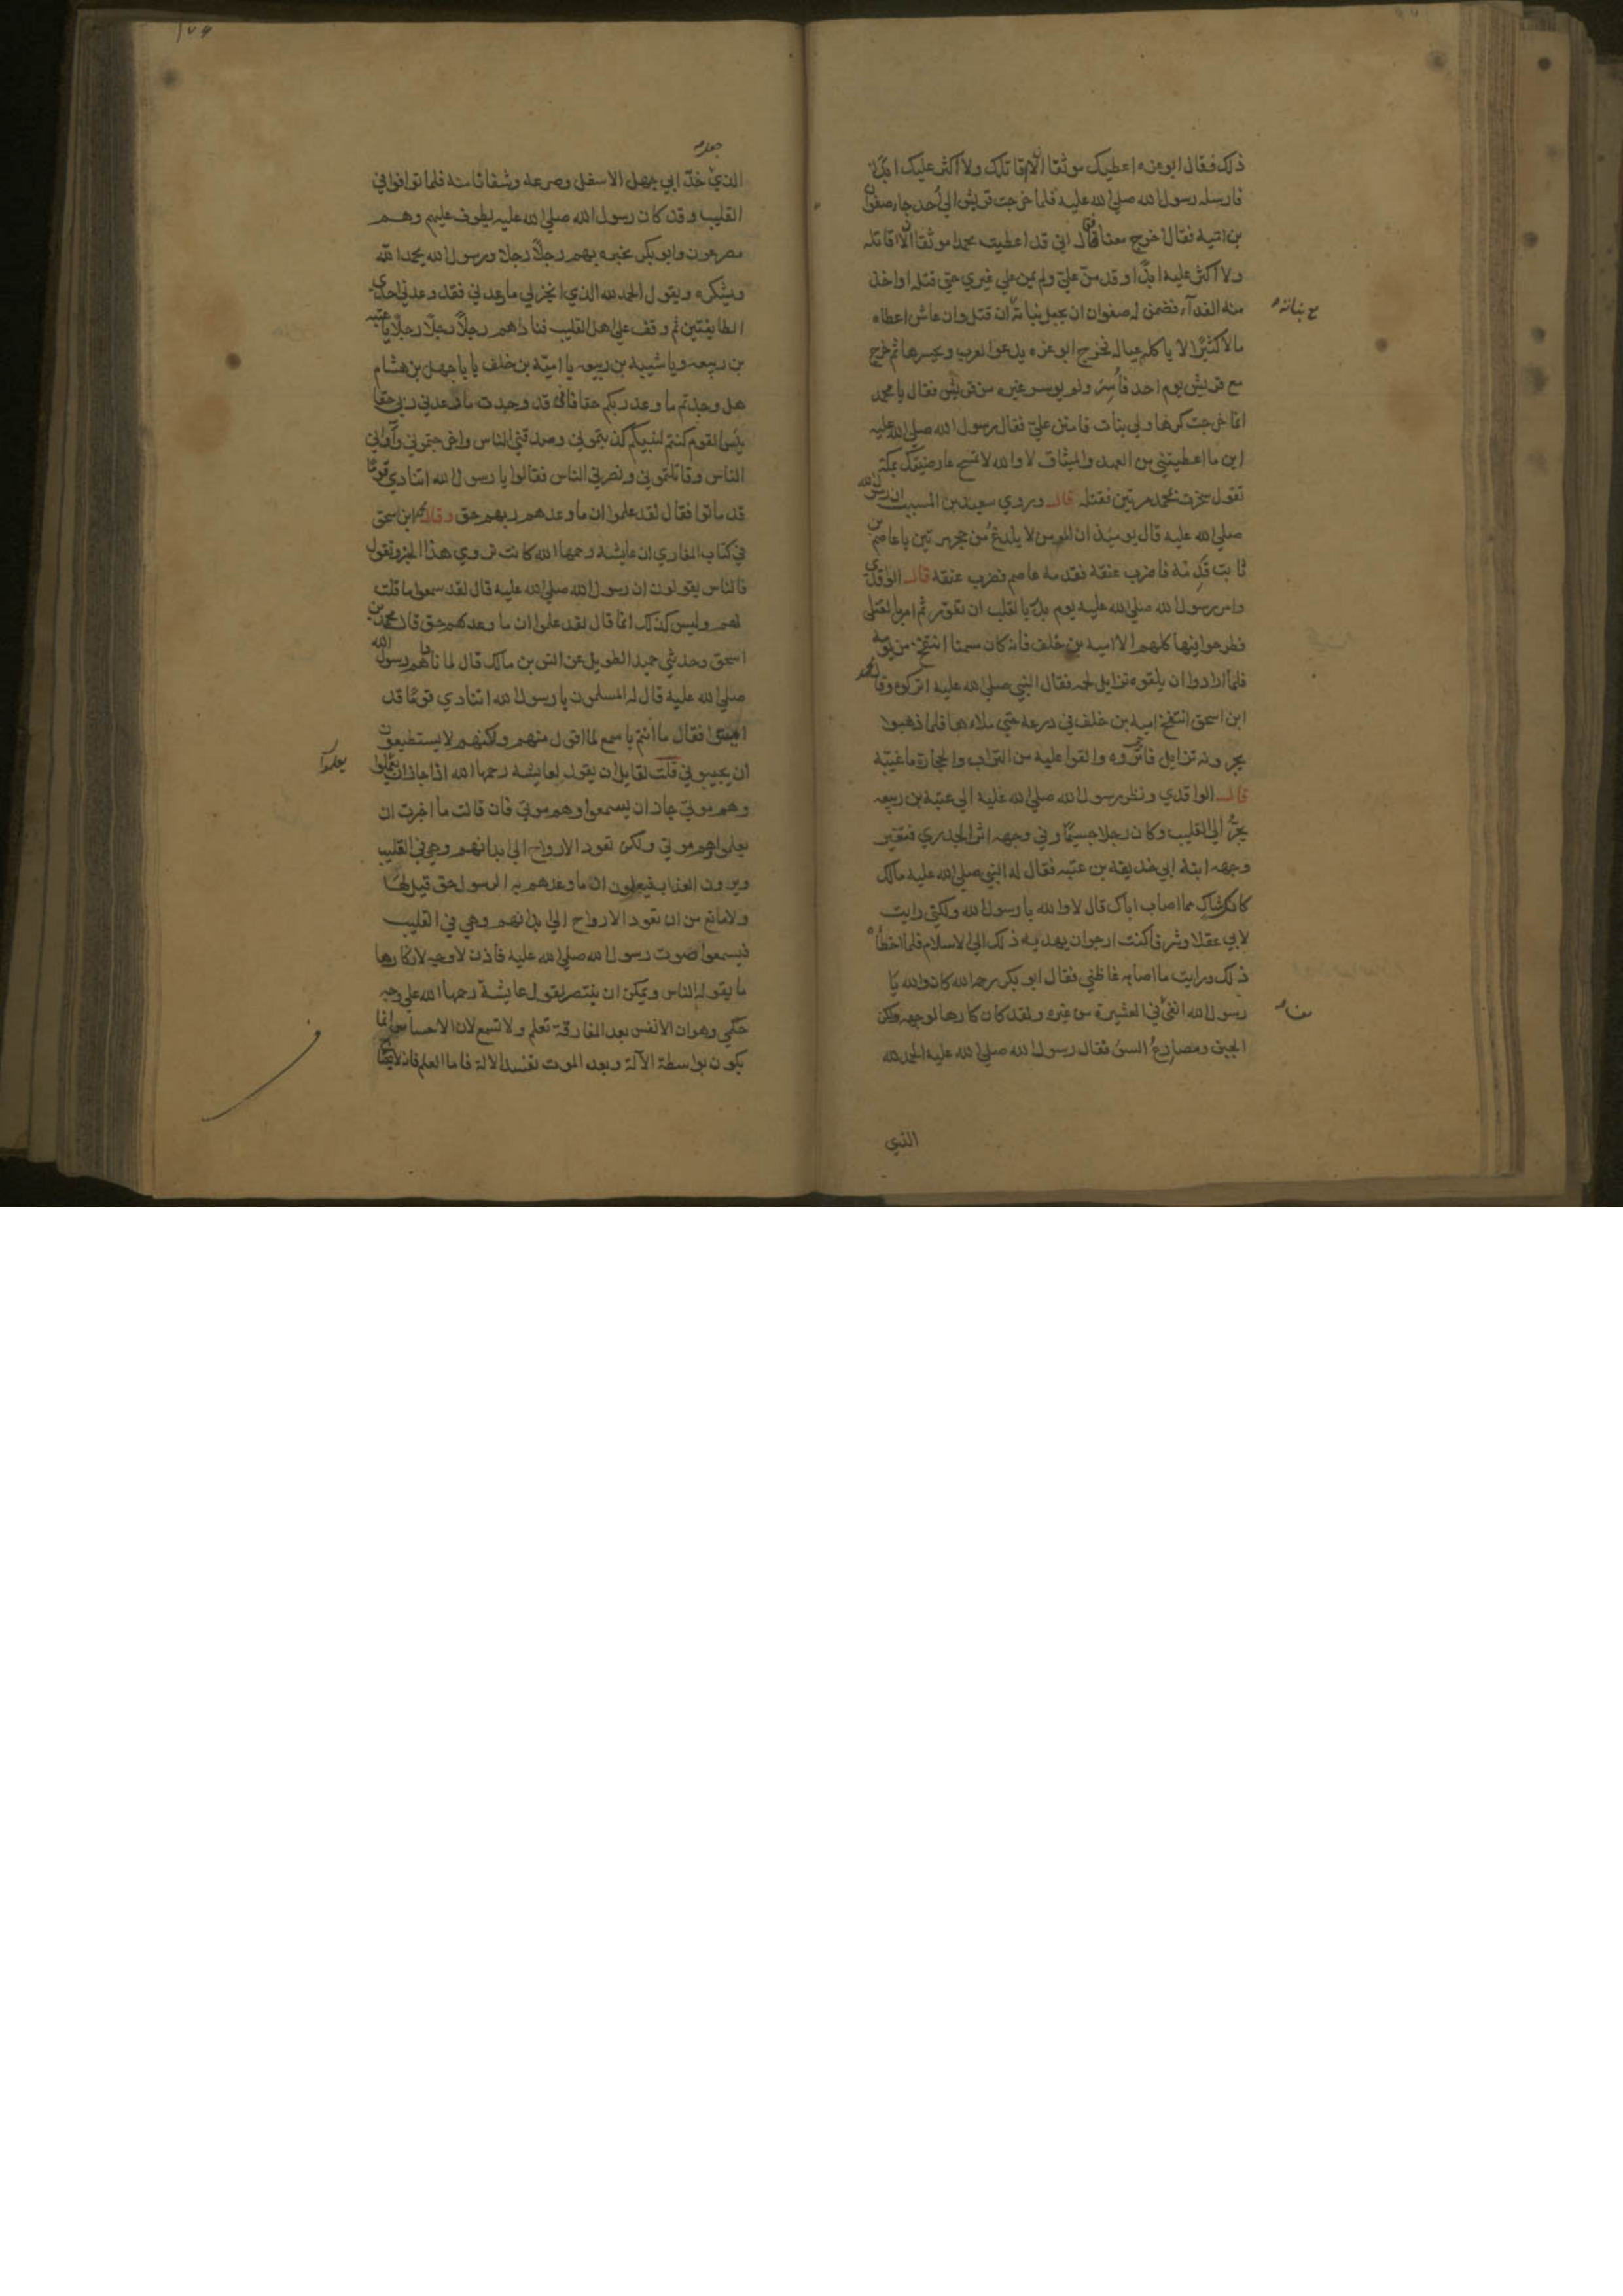 ذلك فقال ابو عزه اعطيك موثقا الا اقاتلك ولا اكثر عليك ابدًا
فارسله رسول الله صلى الله عليه فلما خرجت قريش الى أحد جاء صفوان
بن امية فقال اخرج معنا قال اني قد اعطيت محمدا موثقا الا اقاتله
ولا اكثر عليه ابدًا وقد منّ عليّ ولم يمن على غيري حتى قتله او اخذ
ع بناته
منه الفدآء فضمن له صفوان ان يجعل بناته ان قتل وان عاش اعطاه
مالا كثيرًا لا ياكله عياله فخرج ابو عزه يدعوا العرب ويحشرها ثم خرج
مع قريش يوم احد فأسر ولم يوسر غيره من قريش فقال يا محمد
انما خرجت كرها ولي بنات فامنن عليّ فقال رسول الله صلى الله عليه
اين ما اعطيتني من العهد والميثاق لا والله لا تمسح عارضيك بمكة
تقول سخرت بمحمد مرتين فقتله قال وروي سعيد بن المسيب ان رسول الله
صلى الله عليه قال يومئذ ان المومن لا يلدغ من جحر مرتين يا عاصم بن
ثابت قدمه فاضرب عنقه فقدمه عاصم فضرب عنقه قال الواقدي
وامر رسول الله صلى الله عليه يوم بدر بالقلب ان تغور ثم امر بالقتلى
فطرحوا فيها كلهم الا امية بن خلف فانه كان سمنا انتفخ من يومه
فلما ارادوا ان يلقوه تزايل لحمه فقال النبي صلى الله عليه اتركوه وقال محمد
ابن اسحق انتفخ امية بن خلف في درعه حتى ملاءها فلما ذهبوا
يجرونه تزايل فاقروه والقوا عليه من التراب والحجارة ما غيبه
قال الواقدي ونظر رسول الله صلى الله عليه الى عتبة بن ربيعه
يجرّ الى القليب وكان رجلا جسيمًا وفي وجهه اثر الجدري فتغير
وجهه ابنه ابي حذيفة بن عتبه فقال له النبي صلى الله عليه مالك
كانك شاك مما اصاب اباك قال لا والله يا رسول الله ولكني رايت
لابي عقلا وشرفا كنت ارجوان يهديه ذلك الى الاسلام فلما اخطأه
ذلك ورايت ما اصابه غاظني فقال ابو بكر رحمه الله كان والله يا
رسول الله ابقى في العشيرة من غيره ولقد كان كارها لوجهه ولكن
الحين ومصارع السوء فقال رسول الله صلى الله عليه الحمد لله
الذي
١٧٩
جعل
الذي خدّ ابي جهل الاسفل وصرعه وشفانا منه فلما توافوا في
القليب وقد كان رسول الله صلى الله عليه يطوف عليهم وهم
مصرعون وابو بكر يخبره بهم رجلًا رجلا ورسول الله يحمد الله
ويشكره ويقول الحمد لله الذي انجز لي ما وعدني فقد وعدني احدى
الطايفتين ثم وقف على اهل القليب فناداهم رجلًا رجلًا يا عتبه
بن ربيعه ويا شيبة بن ربيعه يا امية بن خلف يا ابا جهل بن هشام
هل وجدتم ما وعد ربكم حقا فاني قد وجدت ما وعدني ربي حقا
بئس القوم كنتم لنبيكم كذبتموني وصدقني الناس واخرجتموني وآواني
الناس وقاتلتموني ونصرني الناس فقالوا يا رسول الله اتنادي قومًا
قد ماتوا فقال لقد علموا ان ما وعدهم ربهم حق وقال محمد ابن اسحق
في كتاب المغازي ان عايشة رحمها الله كانت تروي هذا الخبر وتقول
فالناس يقولون ان رسول الله صلى الله عليه قال لقد سمعوا ما قلت
لهم وليس كذلك انما قال لقد علموا ان ما وعدكهم حق قال محمد بن
اسحق وحدثني حميد الطويل عن انس بن مالك قال لما ناداهم رسول الله
صلى الله عليه قال له المسلمون يا رسول الله اتنادي قومًا قد
فقال ما انتم باسمع لما اقول منهم ولكنهم لا يستطيعون
يعلموا
ان يجيبوني قلت لقايل ان يقول لعايشة رحمها الله اذا جاز ان يعلموا
وهم موتى جاز ان يسمعوا وهم موتى فان قالت ما اخبرت ان
يعلموا وهم موتى ولكن تعود الارواح الى ابدانهم وهي في القليب
ويرون العذاب فيعلمون ان ما وعدهم به الرسول حق قيل لها
ولا مانع من ان تعود الارواح الى ابدانهم وهي في القليب
فيسمعوا صوت رسول الله صلى الله عليه فاذن لا وجه لانكارها
ما يقوله الناس ويمكن ان ينتصر لقول عايشة رحمها الله على وجه
حكمي وهو ان الانفس بعد المفارقة تعلم ولا تسمع لان الاحساس انما
يكون بواسطة الآلة وبعد الموت تفسد الالة فاما العلم فانه لا يحتاج